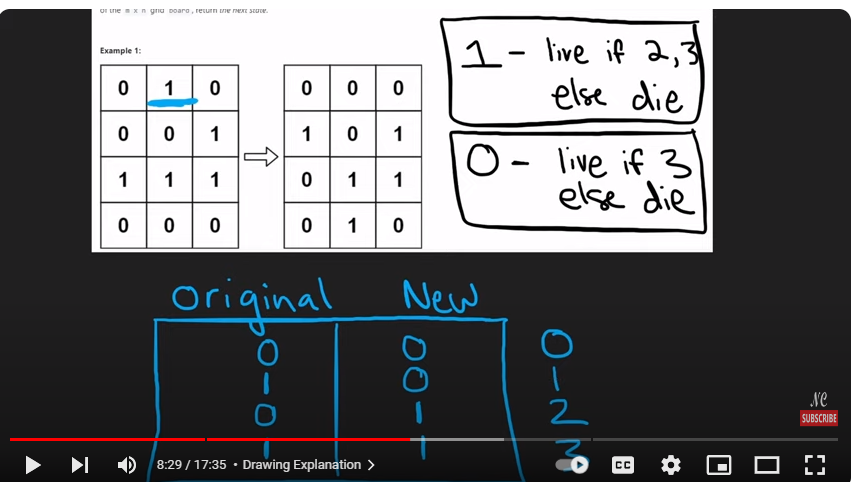 of the m x n grid board, return the next state.
Example 1:
0 1 0
0 0 1
1 1 1
0 0 0
0 0 0
1 0 1
0 1 1
0 1 0
1 - live if 2,3
else die
0 - live if 3
else die
Original New
0 0 0
1 0 1
0 1 2
1 1 3
NC
SUBSCRIBE
8:29 / 17:35 • Drawing Explanation >
CC